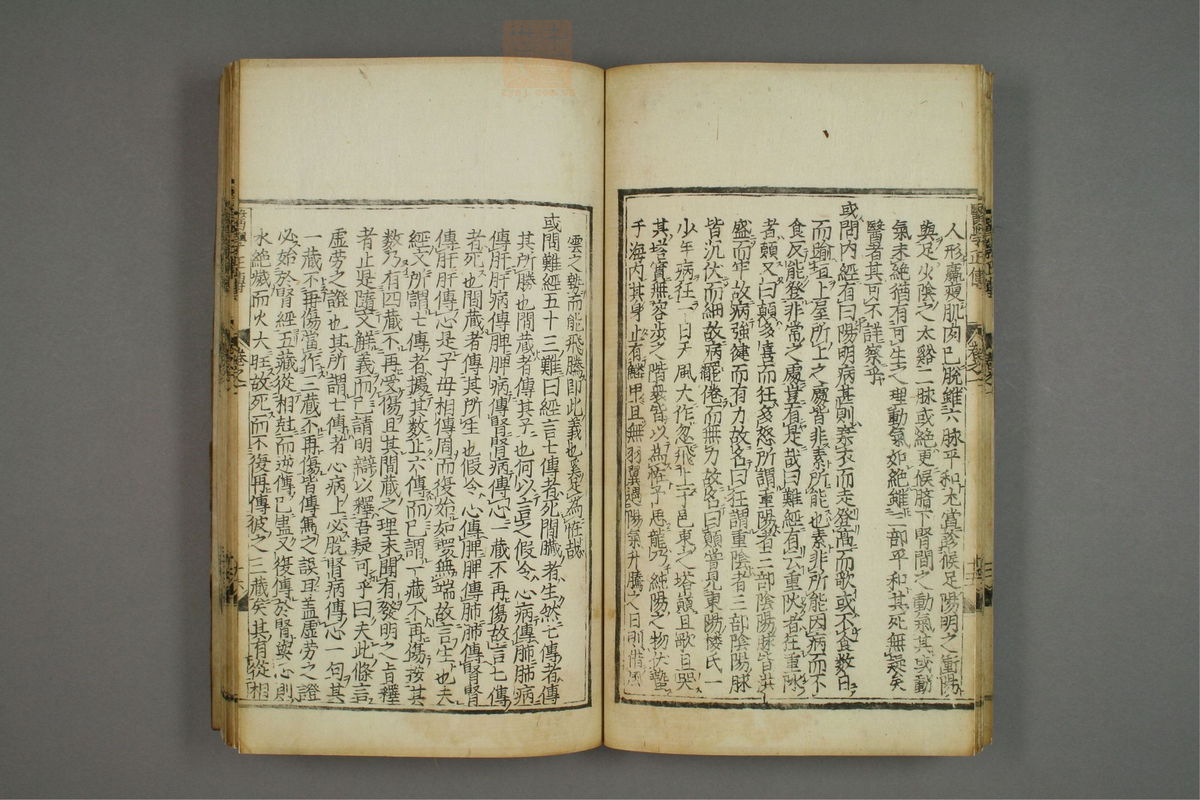 人形羸瘦肌肉已脫雖六脉平和尤當診候足陽明之衝陽
與足少陰之太谿二脉或絕更候臍下腎間之動氣其或動
氣未絕猶有可生之理動氣如絕雖三部平和其死無疑矣
醫者其可不詳察乎
或問内經有曰陽明病甚則棄衣而走登高而歌或不食數日
而踰垣上屋所上之處皆非素所能也素非所能因病而下
食反能登非常之處豈有是哉曰難經有云重陽者狂重陰
者顚又曰顚多喜而狂多怒所謂重陽者三部陰陽脉皆洪
盛而牢故病強健而有力故名曰狂謂重陰者三部陰陽脉
皆沉伏而細故病罷倦而無力故名曰顚嘗見東陽楼氏一
少年病狂一日天風大作忽飛上于邑東之塔顚且歌且哭
其塔實無容步之階衆皆以為恠予思龍乃純陽之物伏蟄
于海内其身止有鱗甲且無羽翼遇陽氣升騰之日則借風
雲之勢而能飛騰即此義也奚足為恠哉
或問難經五十三難曰經言七傳者死間臓者生然七傳者傳
其所勝也間藏者傳其子也何以言之假令心病傳肺肺病
傳肝肝病傳脾脾病傳腎腎病傳心一藏不再傷故言七傳
者死也間藏者傳其所生也假令心傳脾脾傳肺肺傳腎腎
傳肝肝傳心是子母相傳周而復始如環無端故言生也夫
經文所謂七傳者據其數止六傳而已謂一藏不再傷按其
數乃有四藏不再受傷且其間藏之理未聞有發明之旨釋
者止是隨文解義而已請明辯以釋吾疑可乎曰夫此條言
虚勞之證也其所謂七傳者心病上必脫腎病傳心一句其
一藏不再傷當作三藏不再傷皆傳寫之誤耳盖虚勞之證
必始於腎經五藏從相尅而逆傳已盡又復傳於腎與心則
水絶滅而火大旺故死而不復再傳彼之三藏矣其有從相
醫學正傳
卷之一
十六